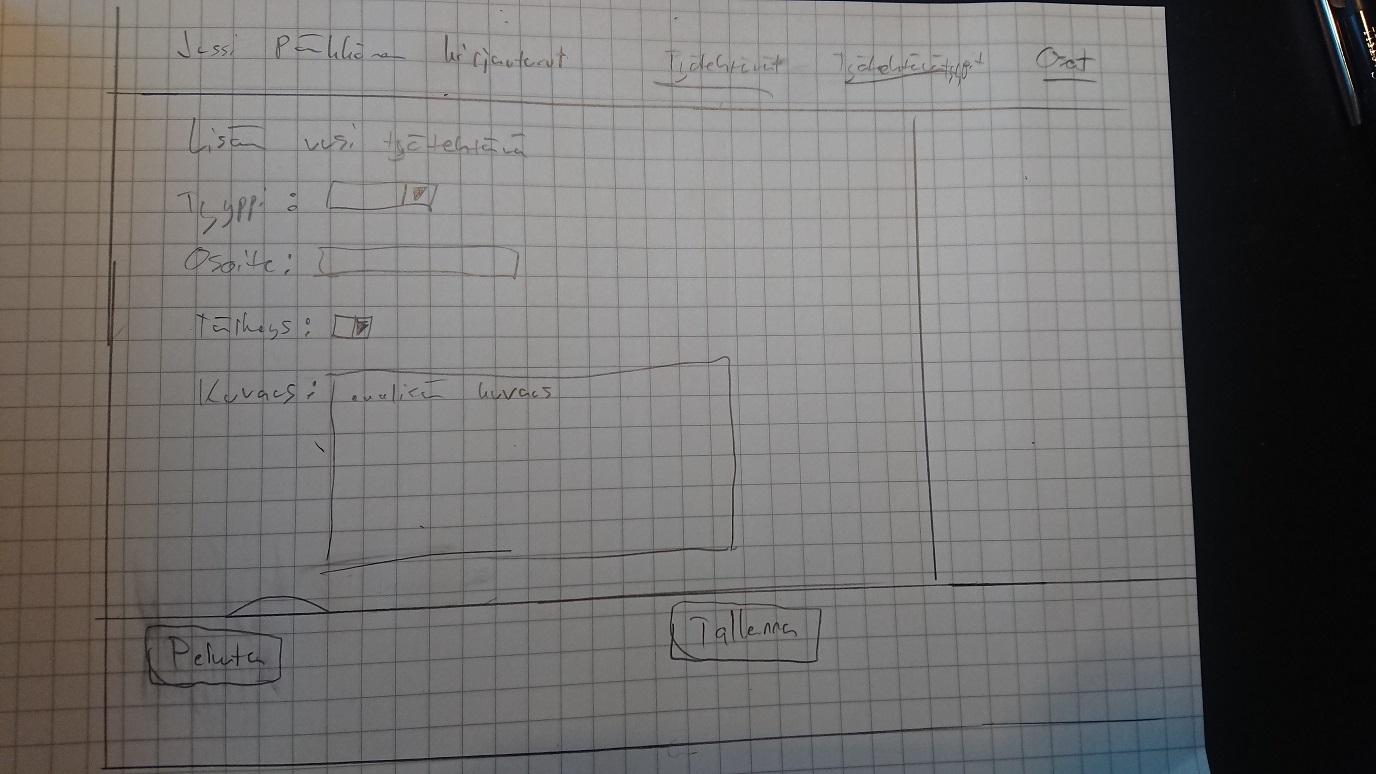 Jussi kirjautunut Työtehtävät Työtehtävätyypit Osat
Lisää uusi työtehtävä
Tyyppi:
Osoite:
Tärkeys:
Kuvaus: kuvaus
Peruuta Tallenna